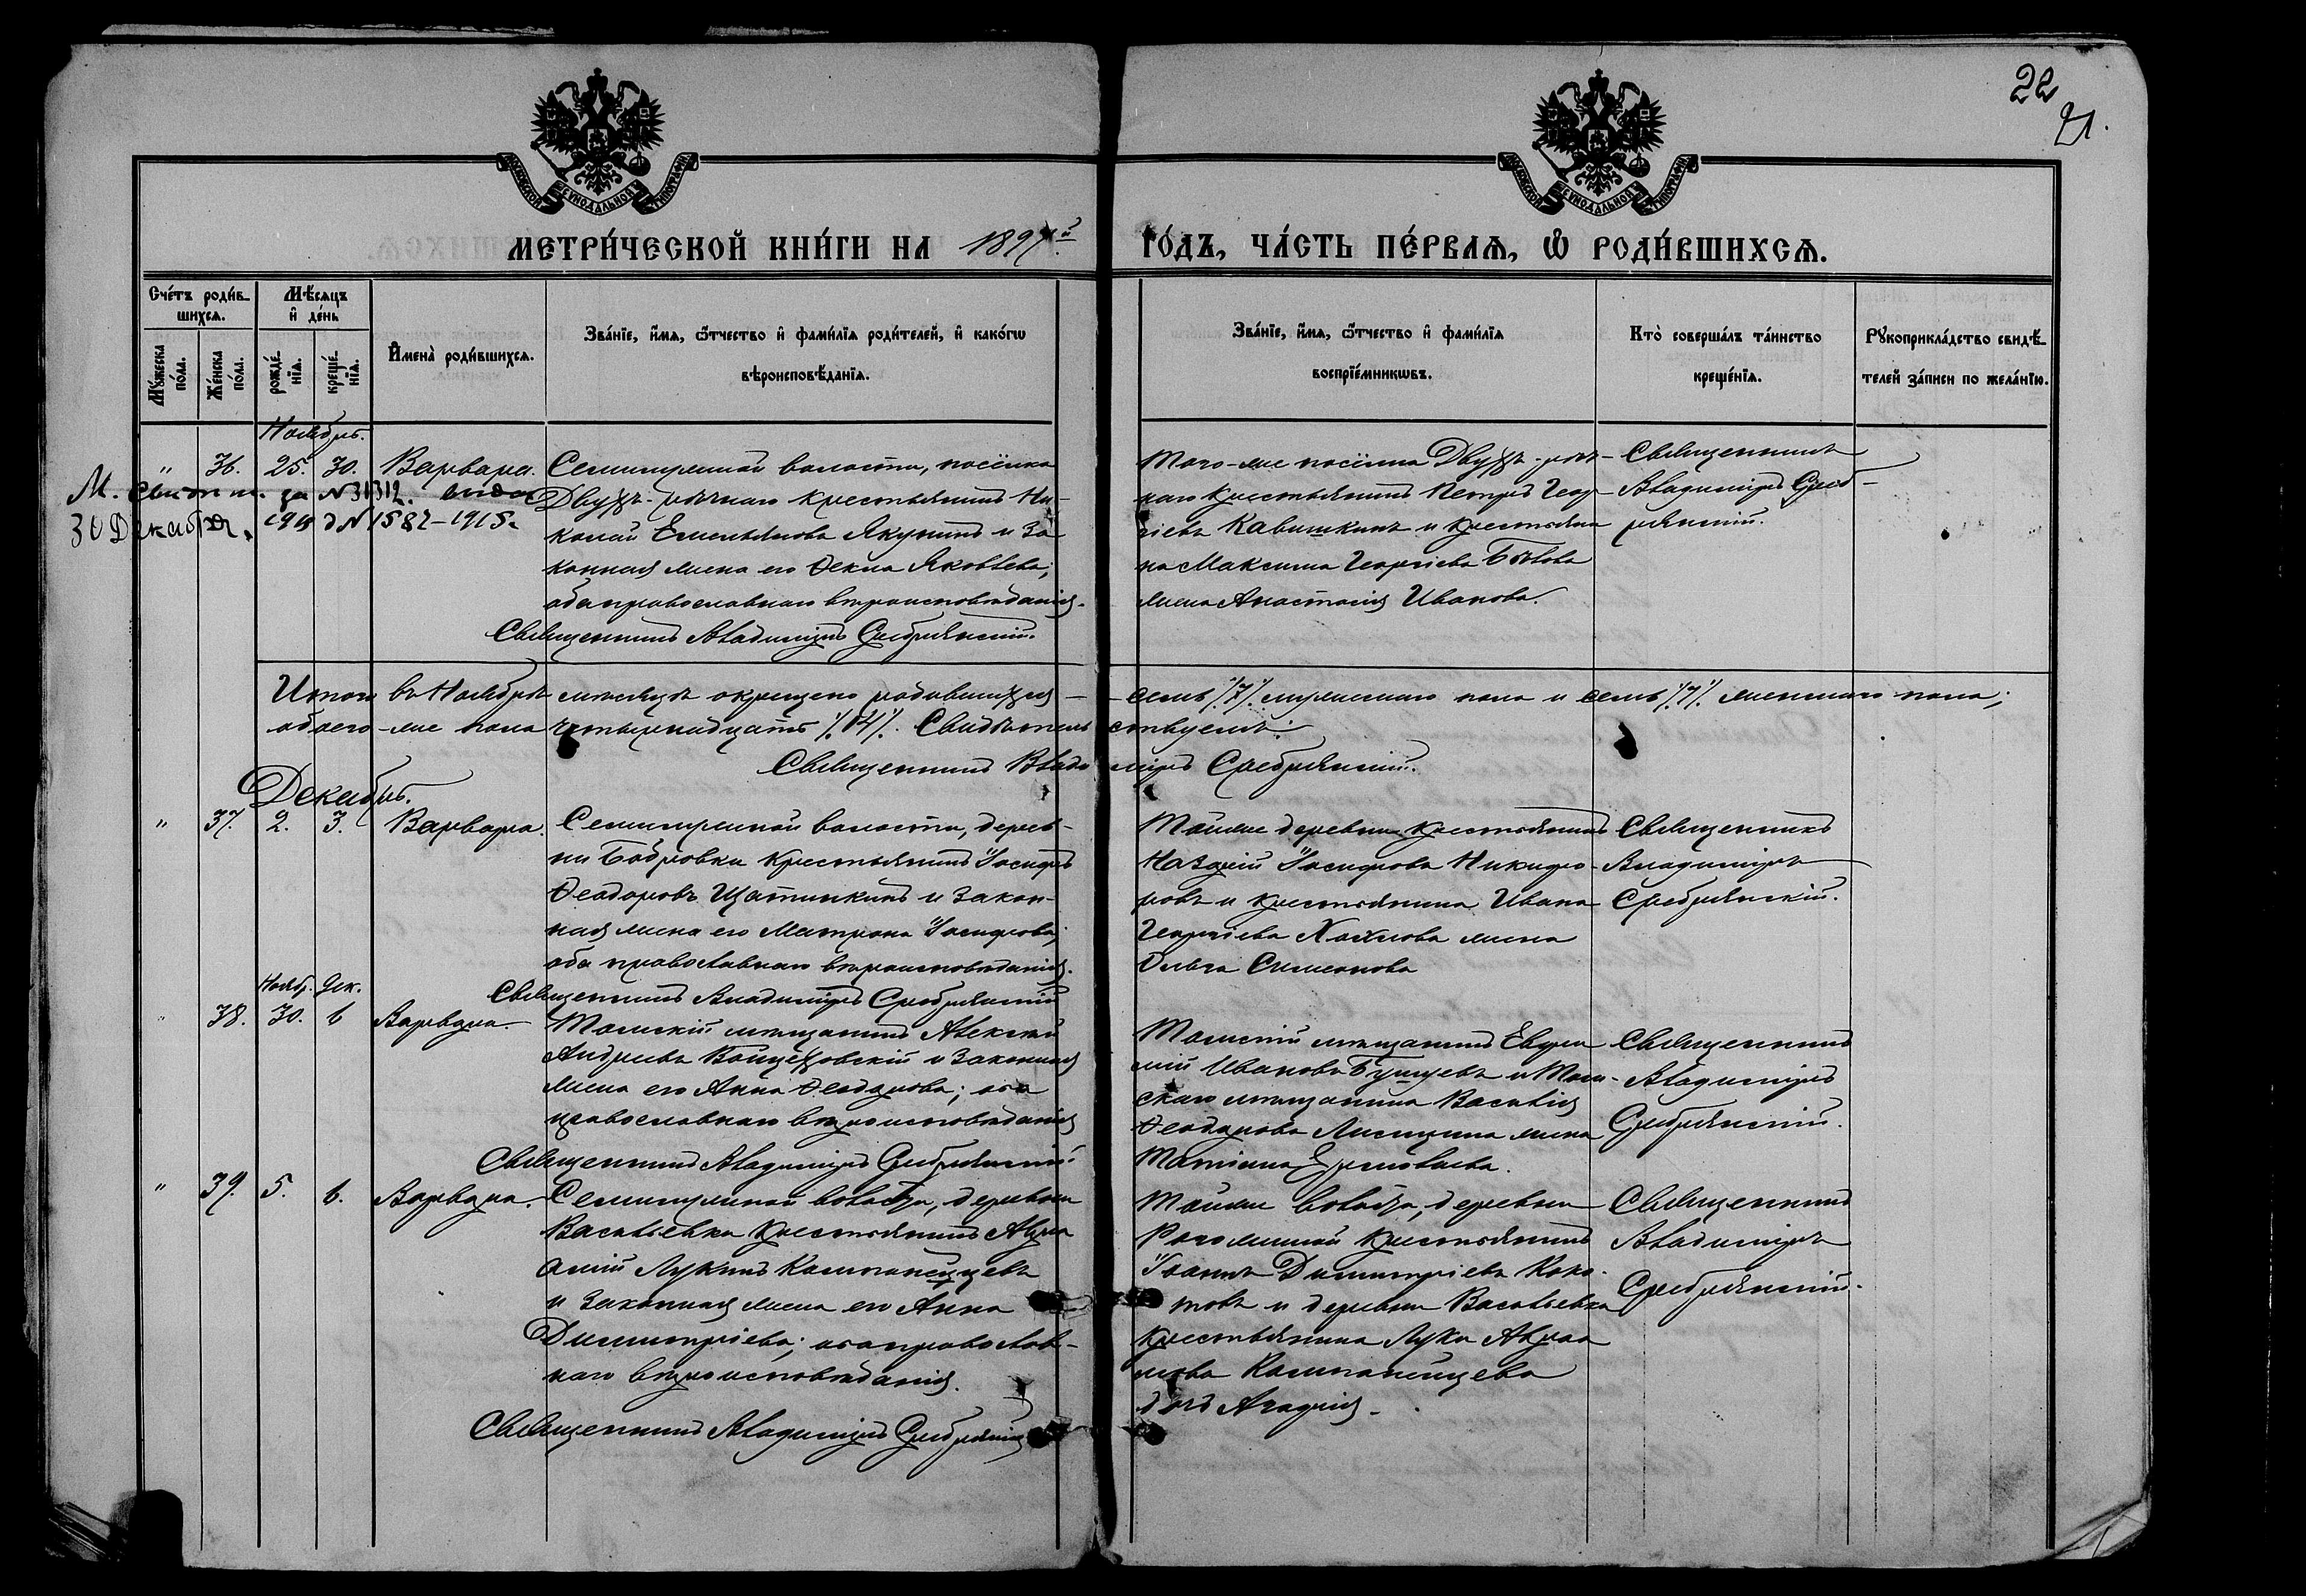 22
21.
МОСКОВСКОЙ СѴНОДАЛЬНОЙ ТИПОГРАФІИ
МОСКОВСКОЙ СѴНОДАЛЬНОЙ ТИПОГРАФІИ
МЕТРИ́ЧЕСКОЙ КНИ́ГИ НА 1897й ГО́ДЪ, ЧА́СТЬ ПЕ́РВАѦ, Ѡ҆ РОДИ́ВШИХСѦ.
Сче́тъ роди́в-
шихсѧ.
Мѣ́сѧцъ
и҆ де́нь
Мꙋ́жеска по́ла.
Же́нска по́ла.
рожде́-нїѧ.
креще́-нїѧ.
И҆мена̀ роди́вшихсѧ.
Зва́нїе, и҆́мѧ, ѻ҆́тчество и҆ фами́лїѧ роди́телей, и҆ како́гѡ
вѣроисповѣ́данїѧ.
Зва́нїе, и҆́мѧ, ѻ҆́тчество и҆ фами́лїѧ
воспрїе́мникѡвъ.
Кто̀ соверша́лъ та́инство
креще́нїѧ.
Рꙋкоприкла́дство свидѣ́-
телей за́писи по жела́нїю.
Ноябрь.
" 36. 25. 30. Варвара.
Семилужной волости, посёлка
Двухъ-рѣчнаго крестьянинъ Ни-
колай Емельяновъ Якунинъ и за
конная жена его Ѳекла Яковлева;
оба православнаго вѣроисповѣданія.
Священникъ Владиміръ Сребрянскій.
М. за № 31312.
30 Декабря № 1582-1915.
Того-же посёлка Двухъ-рѣч-
наго крестьянинъ Петръ Геор-
гіевъ и крестьяни
на Максима Георгіева Бѣлова
жена Анастасія Иванова.
Священникъ
Владиміръ Среб-
рянскій.
Итого въ Ноябрѣ мѣсяцѣ окрещено родившихся - семь /7/ мужескаго пола и семь /7/ женскаго пола;
обоего-же пола четырнадцать /14/. Свидѣтельствуемъ:
Священникъ Владиміръ Сребрянскій.
Декабрь.
" 37. 2. 3. Варвара.
Семилужной волости, дерев-
ни Бобровки крестьянинъ Іосифъ
Ѳеодоровъ Щатинкинъ и закон-
ная жена его Матрона Іосифова;
оба православнаго вѣроисповѣданія.
Священникъ Владиміръ Сребрянскій
Тойже деревни крестьянинъ
Назарій Іосифовъ Никифо-
ровъ и крестьянина Ивана
Георгіева жена
Ольга Симеонова
Священникъ
Владиміръ
Сребрянскій.
Нояб. Дек.
" 38. 30. 6 Варвара.
Томскій мѣщанинъ Алексѣй
Андреевъ Войцеховскій и законная
жена его Анна Ѳеодорова; оба
православнаго вѣроисповѣданія
Священникъ Владиміръ Сребрянскій
Томскій мѣщанинъ Евфи
мій Ивановъ и Том-
скаго мѣщанина Василія
Ѳеодорова Лисицына жена
Татіана
Священникъ
Владиміръ
Сребрянскій.
" 39. 5. 6. Варвара.
Семилужной волости, деревни
Васильевки крестьянинъ Авра
амій Лукинъ Компанейцевъ
и законная жена его Анна
Димитріева; оба православ-
наго вѣроисповѣданія.
Священникъ Владиміръ Сребрянскій
Тойже волости, деревни
крестьянинъ
Іоаннъ Димитріевъ Коко-
и деревни Васильевки
крестьянина Луки Авраа
мова Компанейцева
дочь
Священникъ
Владиміръ
Сребрянскій.